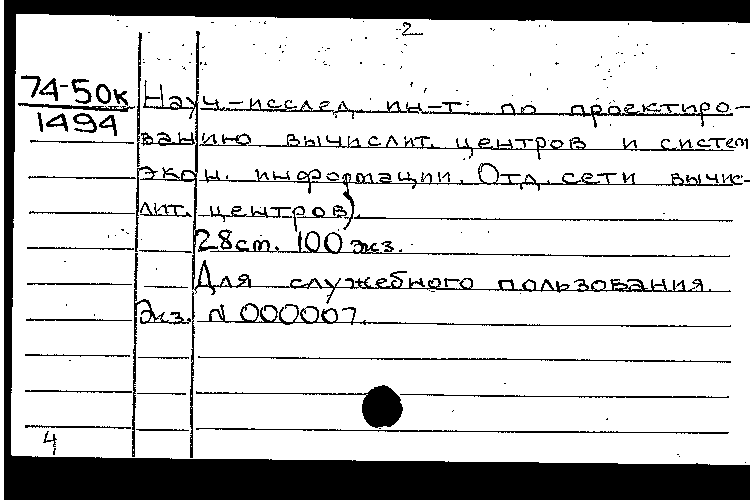 2
74-50к
1494
Науч.-исслед. ин-т. по проектиро-
ванию вычислит. центров и систем
экон. информации. Отд. сети вычис-
лит. центров).
28 ст. 100 экз.
Для служебного пользования.
Экз. N 000007.
4